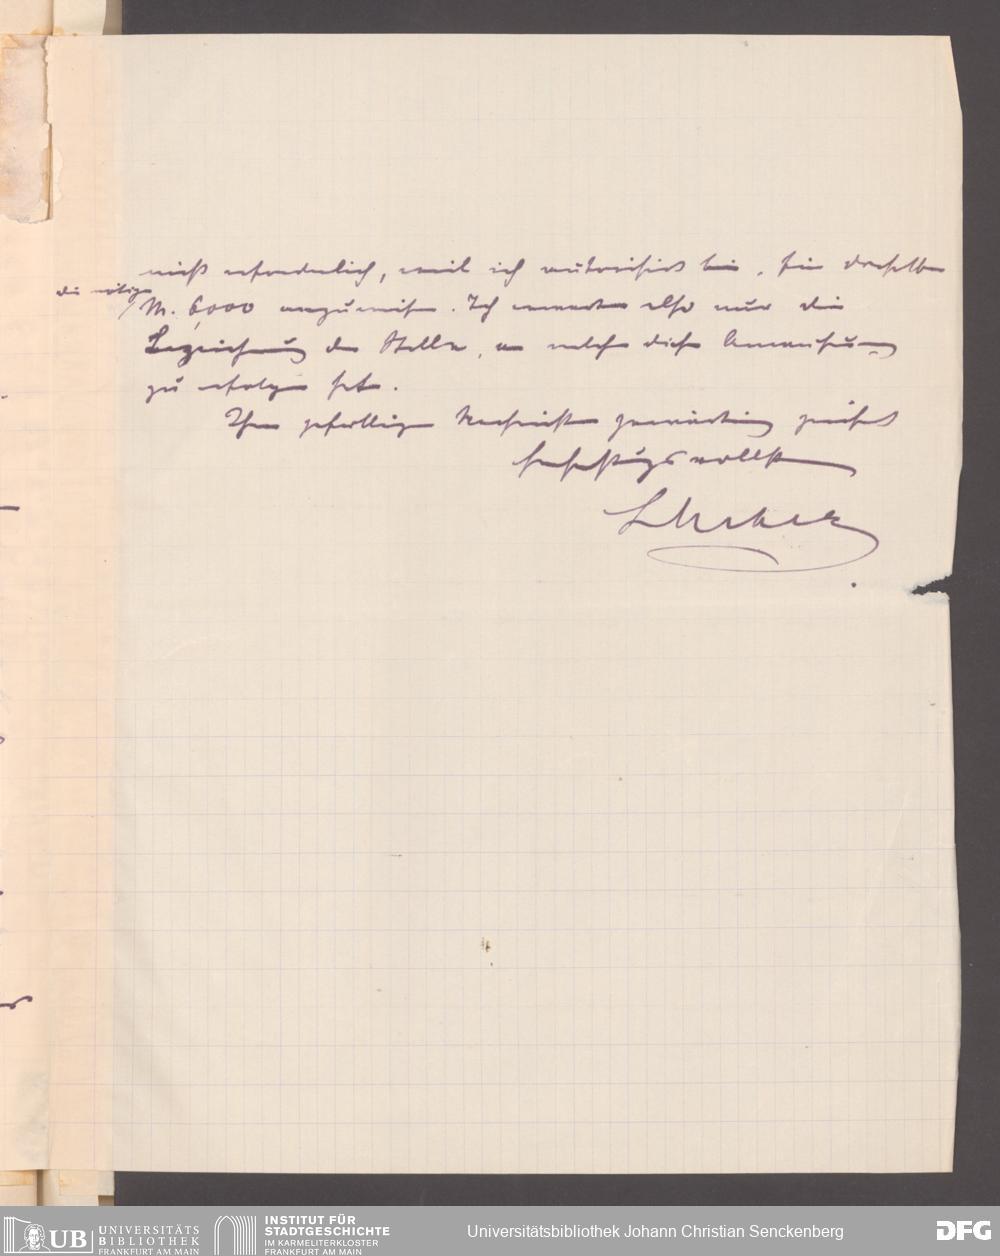 nicht erforderlich, weil ich autorisirt bin, für dieselbe
die nötige
M. 6,000 anzuweisen. Ich erwarte also nur die
Bezeichnung der Stelle, an welche diese Anweisung
zu erfolgen hat.
Ihren gefälligen Nachrichten gewärtig zeichnet
hochachtungsvollst
UB UNIVERSITÄTS
BIBLIOTHEK
FRANKFURT AM MAIN
INSTITUT FÜR
STADTGESCHICHTE
IM KARMELITERKLOSTER
FRANKFURT AM MAIN
Universitätsbibliothek Johann Christian Senckenberg
DFG